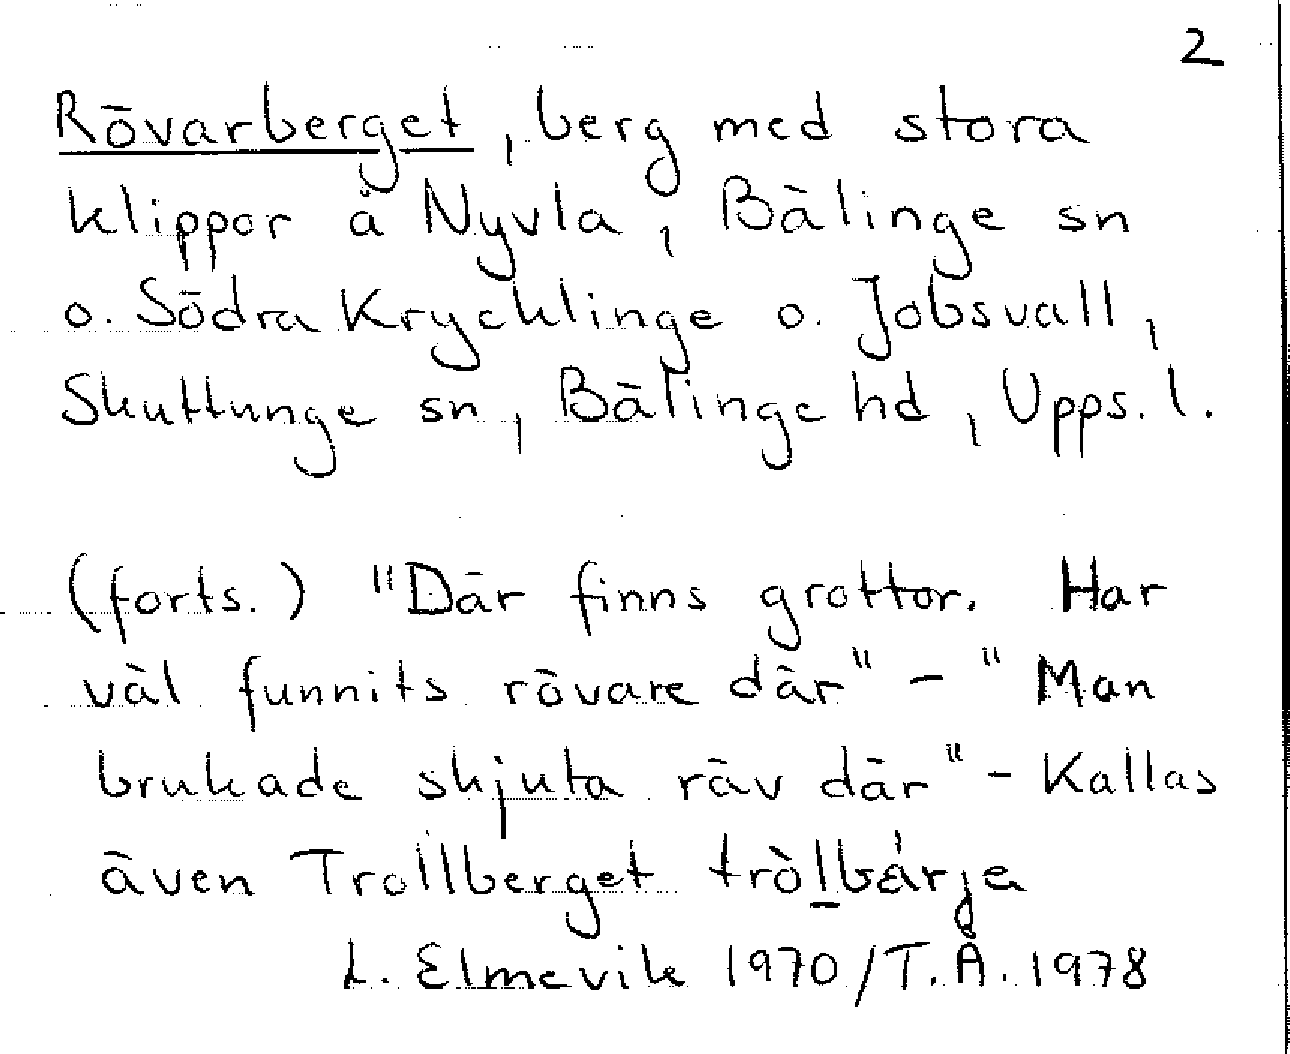 2
Rövarberget, berg med stora
klippor å Nyvla, Bälinge sn
o. Södra Krycklinge o. Jobsvall,
Skuttunge sn, Bälinge hd, Upps. l.
(forts.) "Där finns grottor. Har
väl funnits rövare där" - "Man
brukade skjuta räv där" - Kallas
även Trollberget tròl̲bǽrja
L. Elmevik 1970/T.Å. 1978